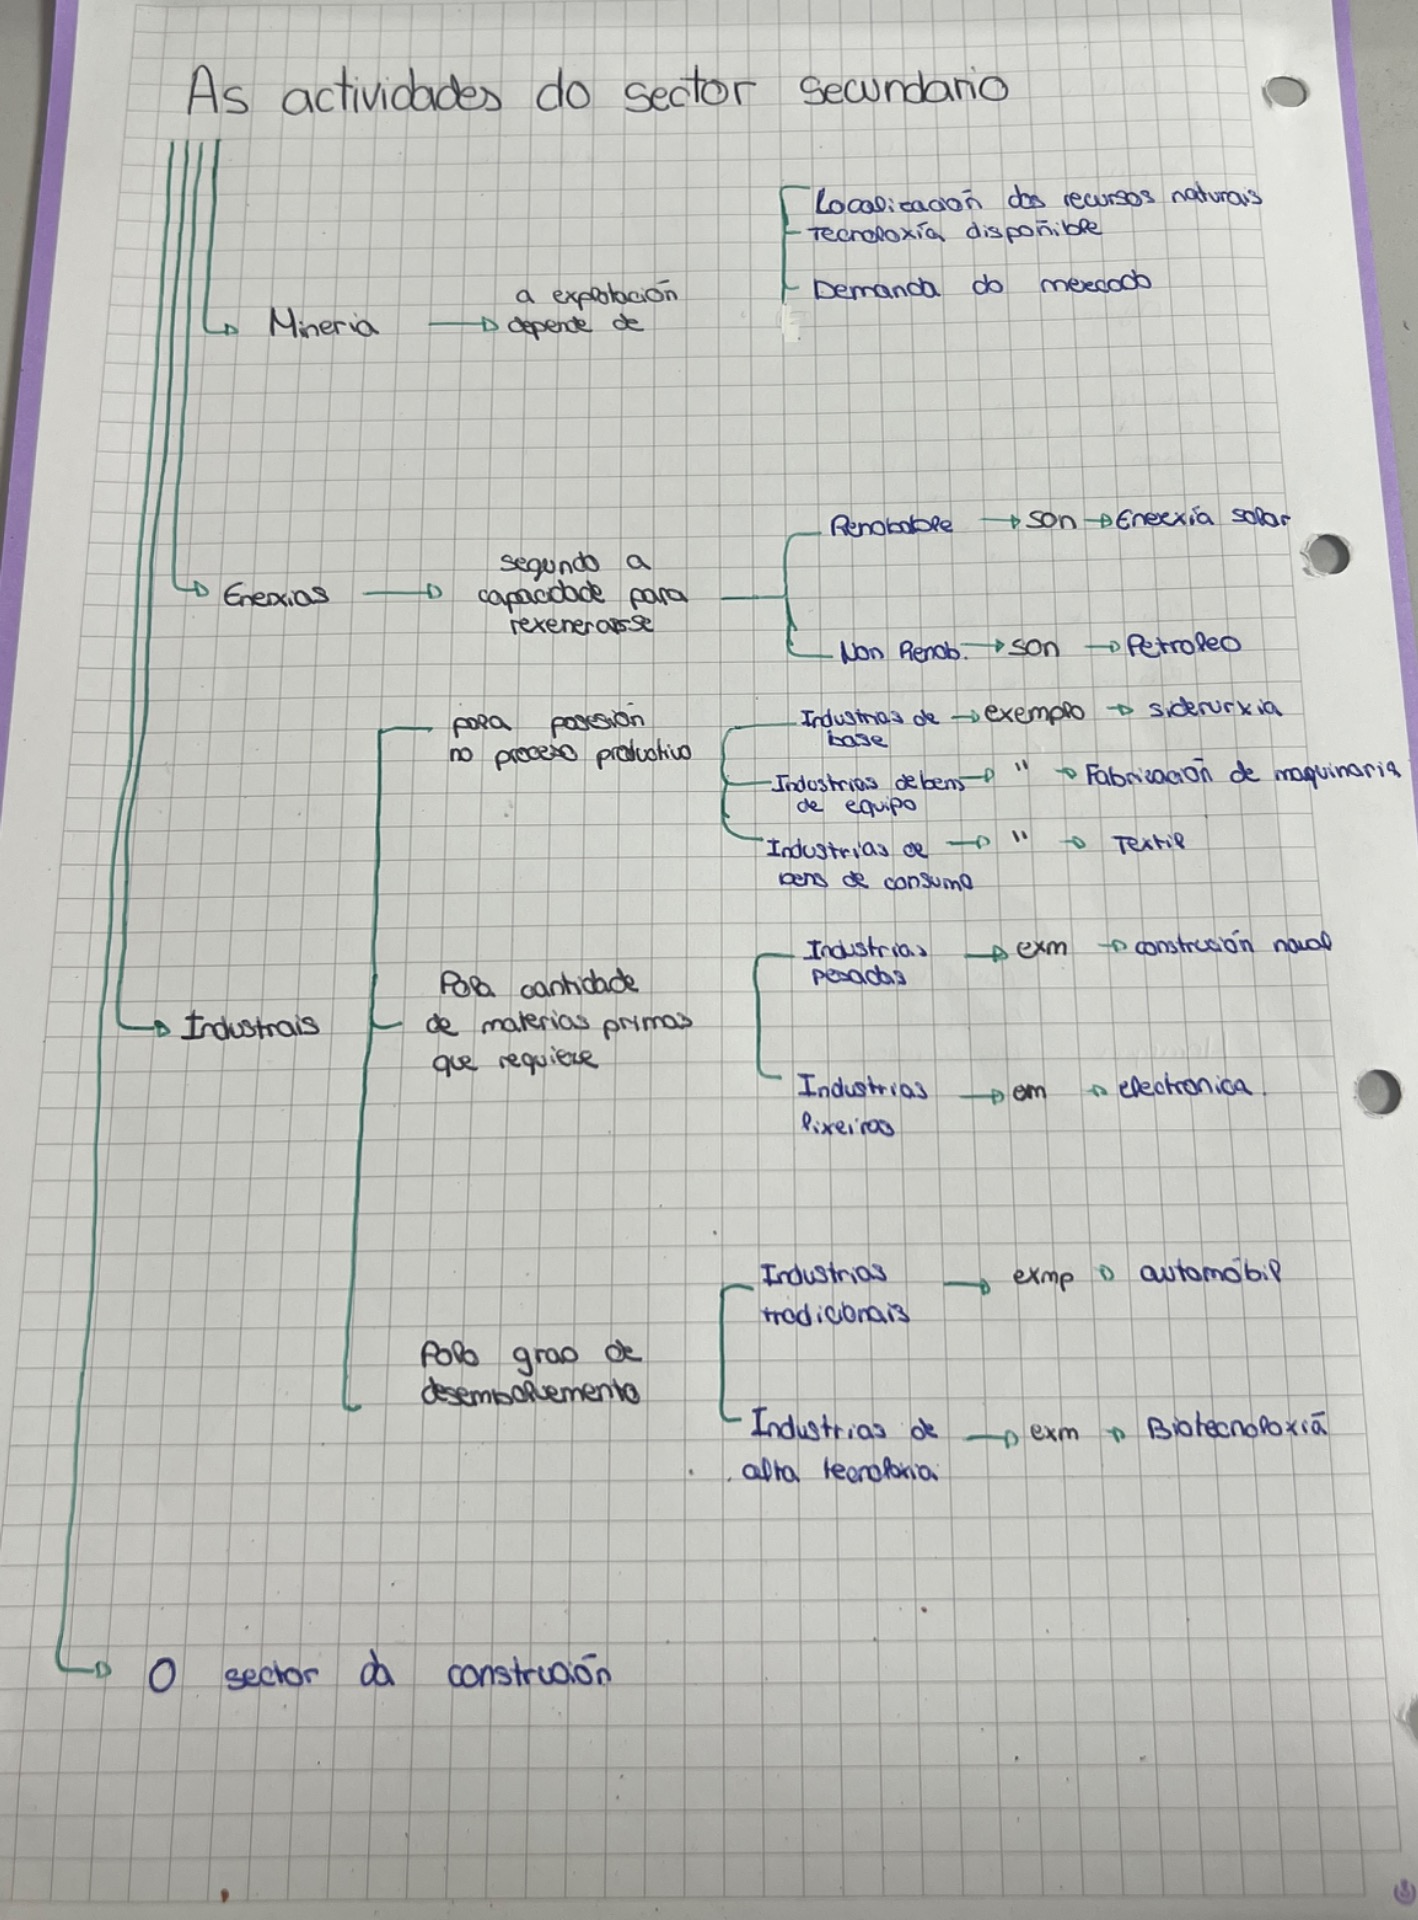 As actividades do sector secundario
Localización dos recursos naturais
Tecnoloxía dispoñible
Demanda do mercado
Mineria
a explotación
depende de
Enerxias
segundo a
capacidade para
rexenerarse
Renobable son Enerxía solar
Non Renob. son Petroleo
pola posesión
no proceso productivo
Industrias de exemplo siderurxia
base
Industrias de bens " Fabricación de maquinaria
de equipo
Industrias de " Textil
bens de consumo
Industrais
Pola cantidade
de materias primas
que requiere
Industrias exm construción naval
pesadas
Industrias em electronica.
lixeiras
Polo grao de
desembolvemento
Industrias exmp automóbil
tradicionais
Industrias de exm Biotecnoloxía
alta tecnoloxia
O sector da construción